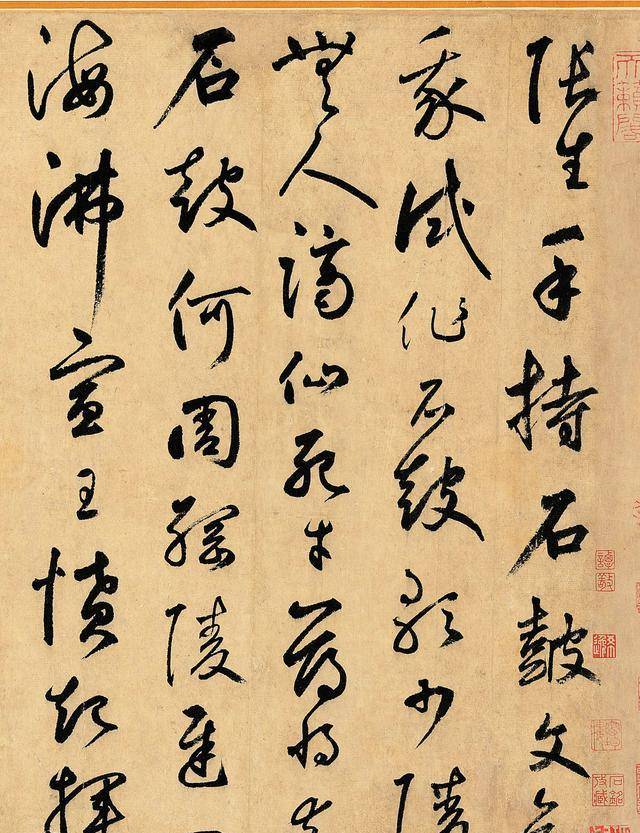 張生手持石鼓文
我試作石鼓歌少陵
無人謫仙死才薄將奈
石鼓何周綱陵遲
海沸宣王憤起揮
天籟閣
石銘收藏